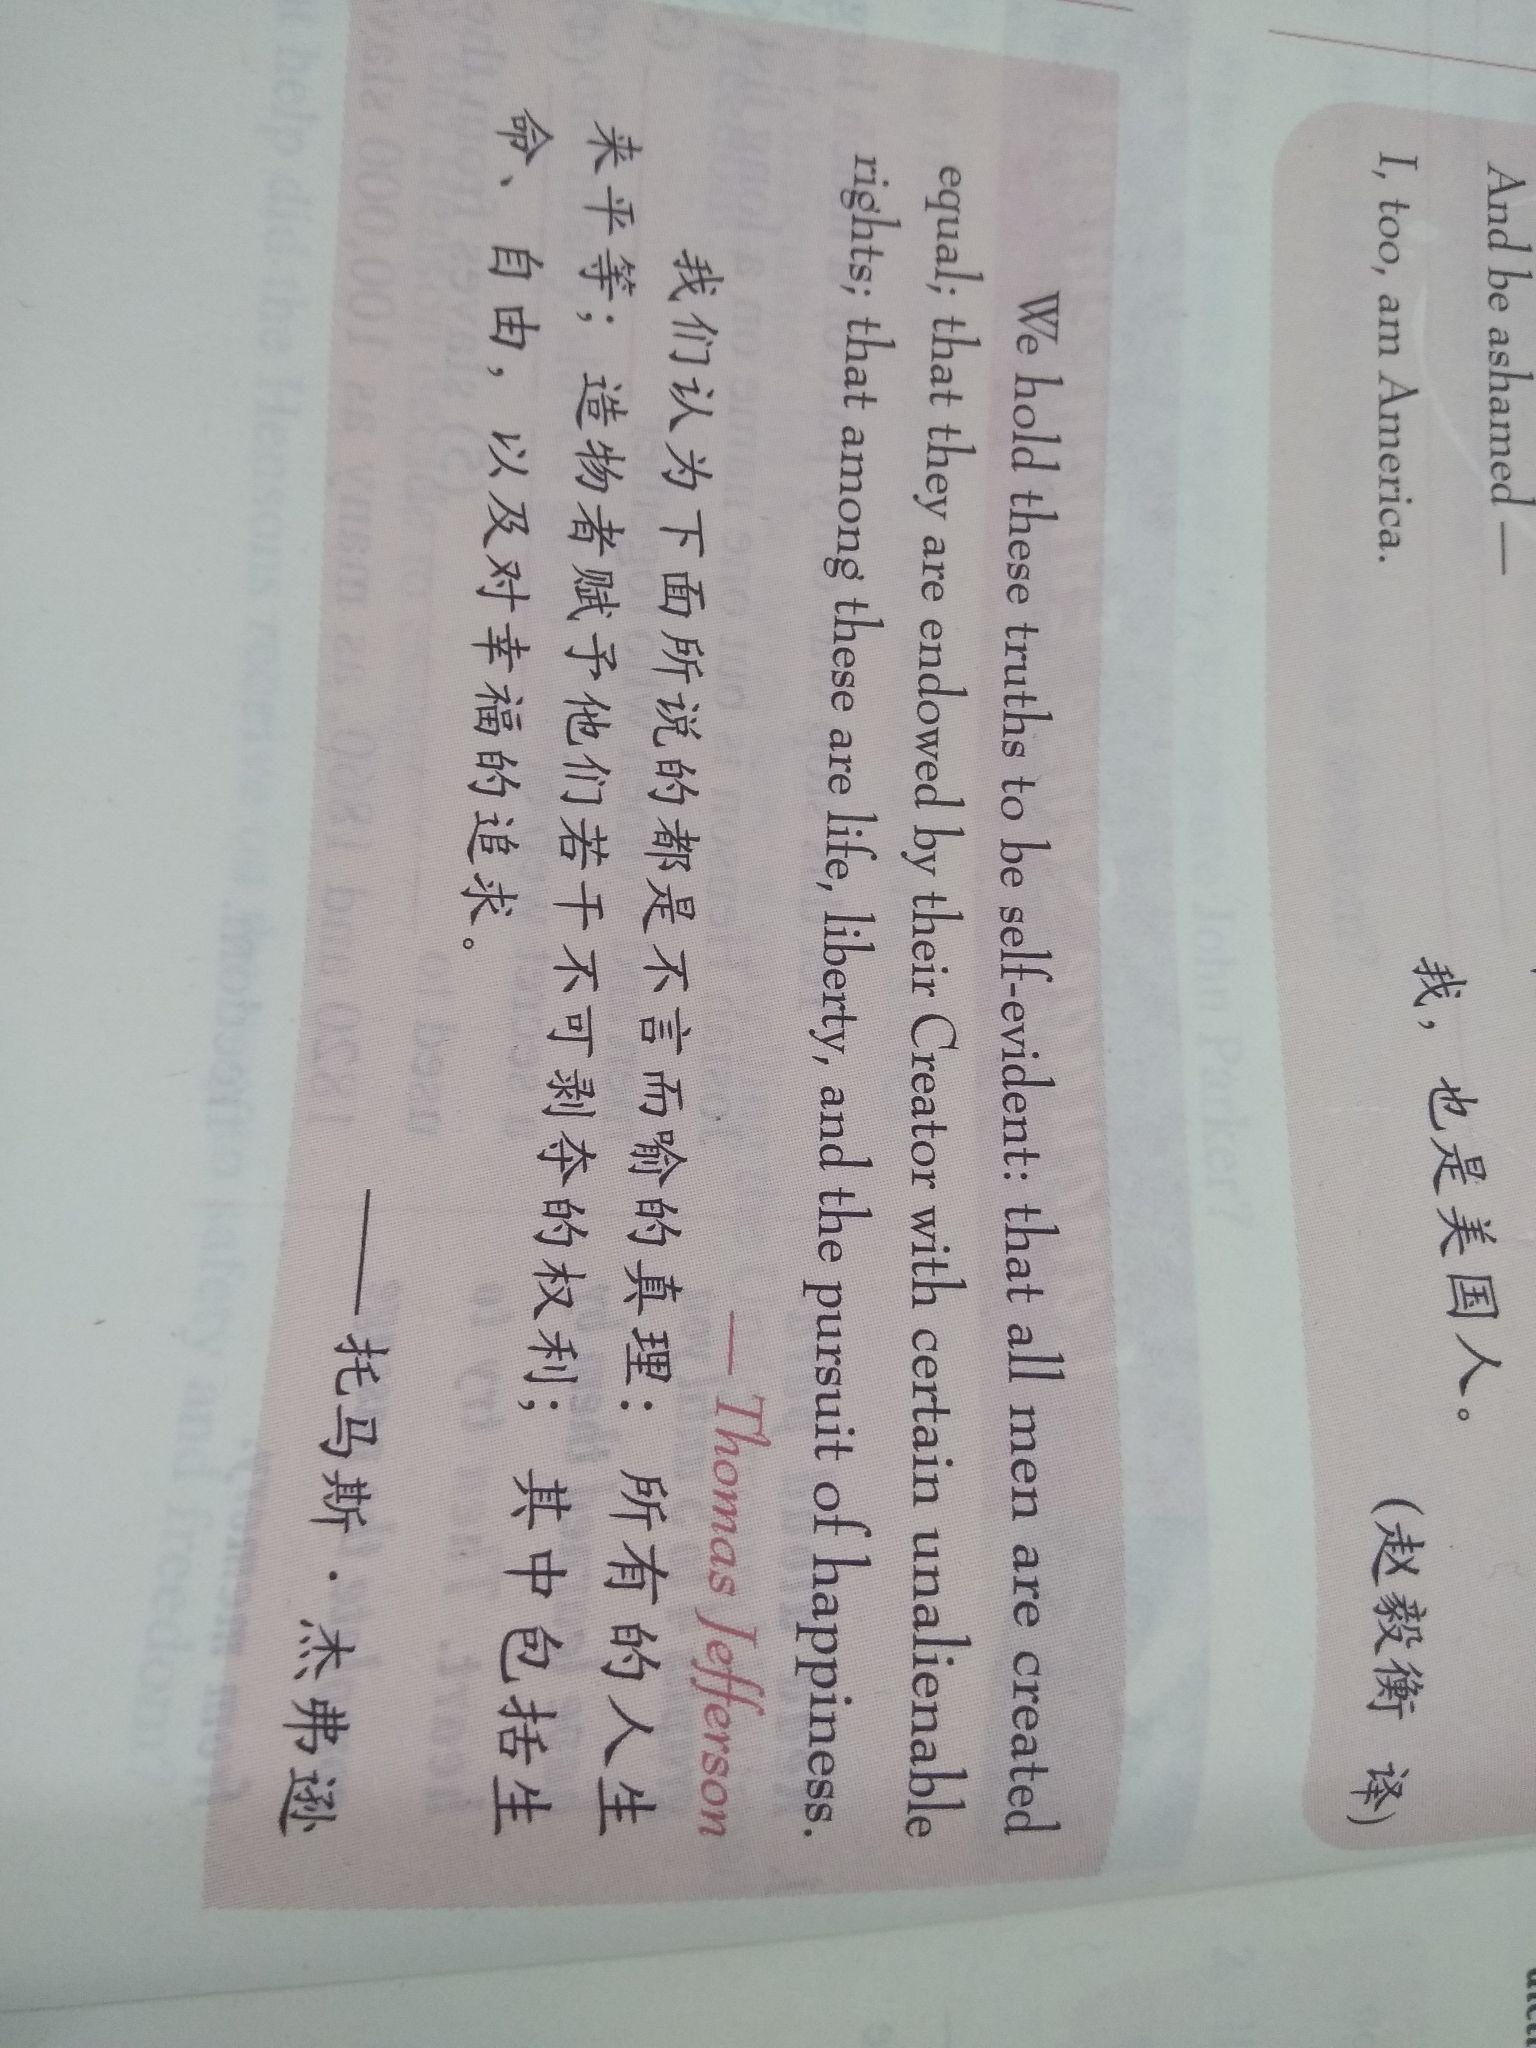 And be ashamed —
I, too, am America.
我，也是美国人。
(赵毅衡 译)
We hold these truths to be self-evident: that all men are created
equal; that they are endowed by their Creator with certain unalienable
rights; that among these are life, liberty, and the pursuit of happiness.
— Thomas Jefferson
我们认为下面所说的都是不言而喻的真理：所有的人生
来平等；造物者赋予他们若干不可剥夺的权利；其中包括生
命、自由，以及对幸福的追求。
——托马斯·杰弗逊